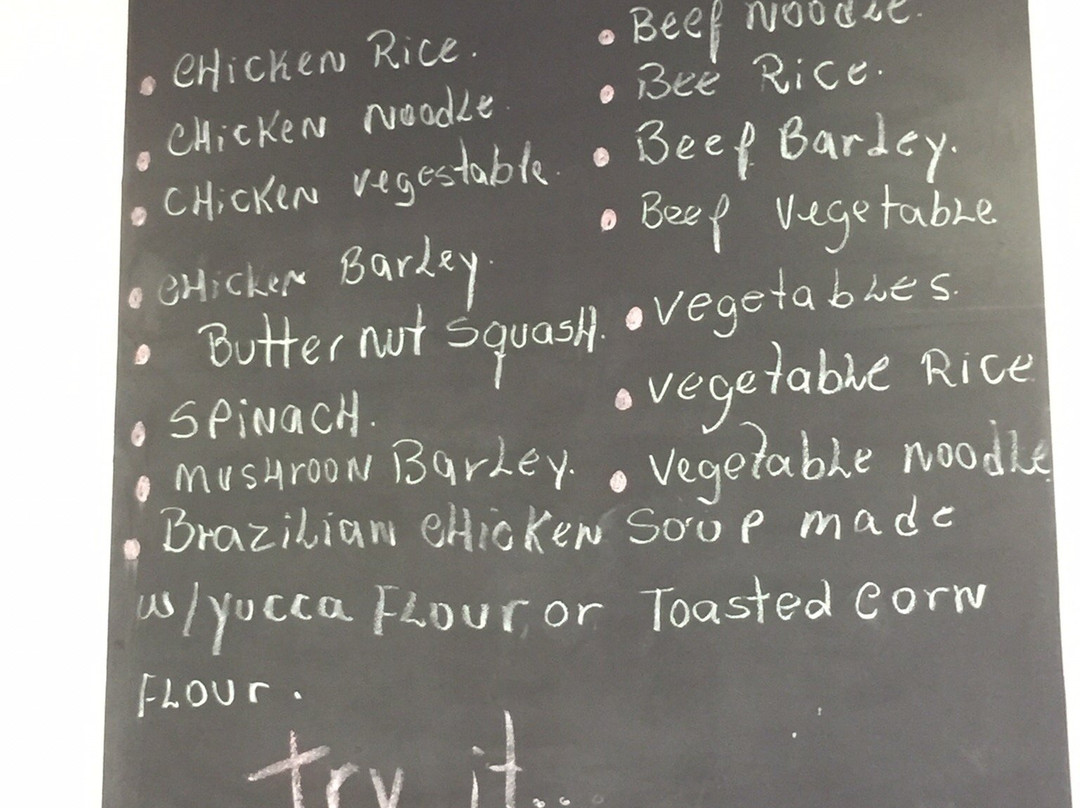 • CHicKEN Rice.
• CHicKEN Noodle.
• CHicKEN vegestable.
• CHicken Barley.
• Butter nut Squash.
• SPiNaCH.
• MUSHROON BarLey.
• Beef Noodle.
• Bee Rice.
• Beef Barley.
• Beef Vegetable
• vegetables.
• vegetable Rice
• Vegetable Noodle.
• Brazilian CHicKEN Soup made
w/yucca FLOUR, or Toasted CORN
FLOUR.
Try it...